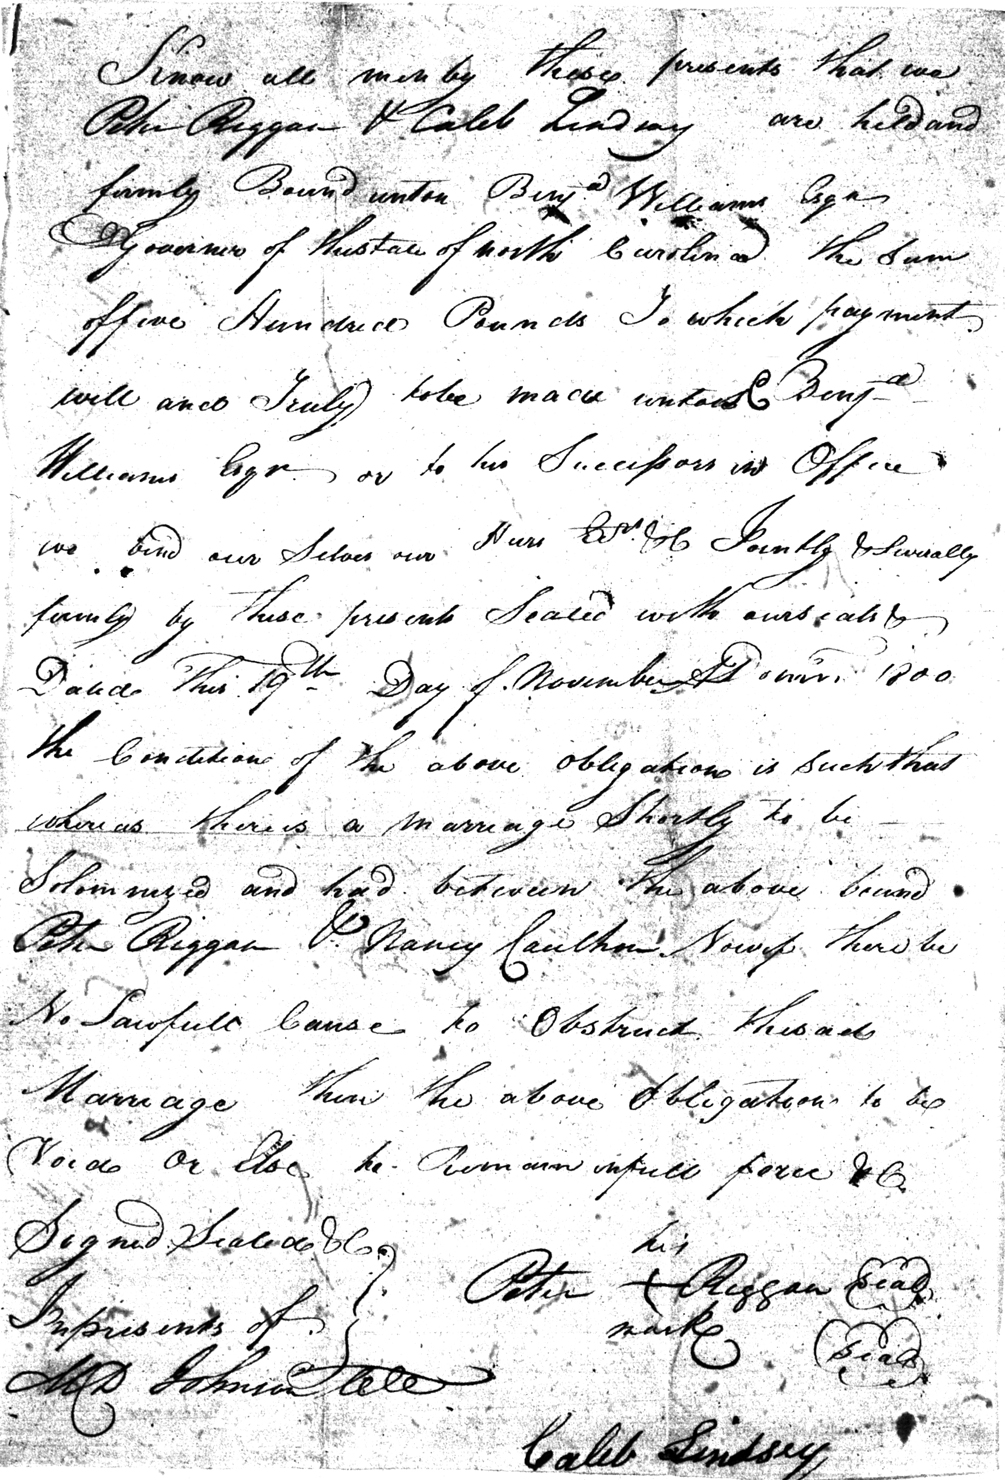 Know all men by these presents that we
Peter Riggan & Caleb Lindsay are held and
firmly Bound unton Benj.a Williams Esqr
Governor of thestate of north Carolina the sum
offive Hundred Pounds To which payment
will and Truly tobe made unto Benja
Williams Esqr or to his Successors in Office
we bind our Selves our Heirs Exrs &C Jointly & Severally
firmly by these presents Sealed with ourseals &
Dated This 19th Day of November AD 1800
the Condition of the above obligation is such that
whereas thereis a marriage Shortly to be
Solomnized and had between the above bound
Peter Riggan & Nancy Now if there be
No Lawfull Cause to Obstruct thesaid
Marriage then the above Obligation to be
Void or Else to Remain infull force &C.
Signed Sealed &C.
Inpresents of
his
Peter + Riggan Seal
mark
Seal
MD Johnson
Caleb Lindsey